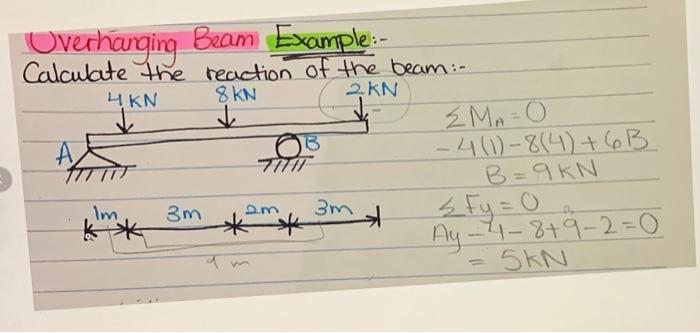 Overhanging Beam Example:-
Calculate the reaction of the beam:-
4 KN 8 KN 2 KN
A B
1m 3m 2m 3m
9 m
ΣMA = 0
- 4(1) - 8(4) + 6B
B = 9 KN
ΣFy = 0
Ay - 4 - 8 + 9 - 2 = 0
= 5KN